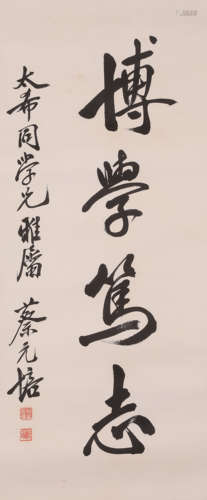 博學篤志
太希同學兄雅屬 蔡元培